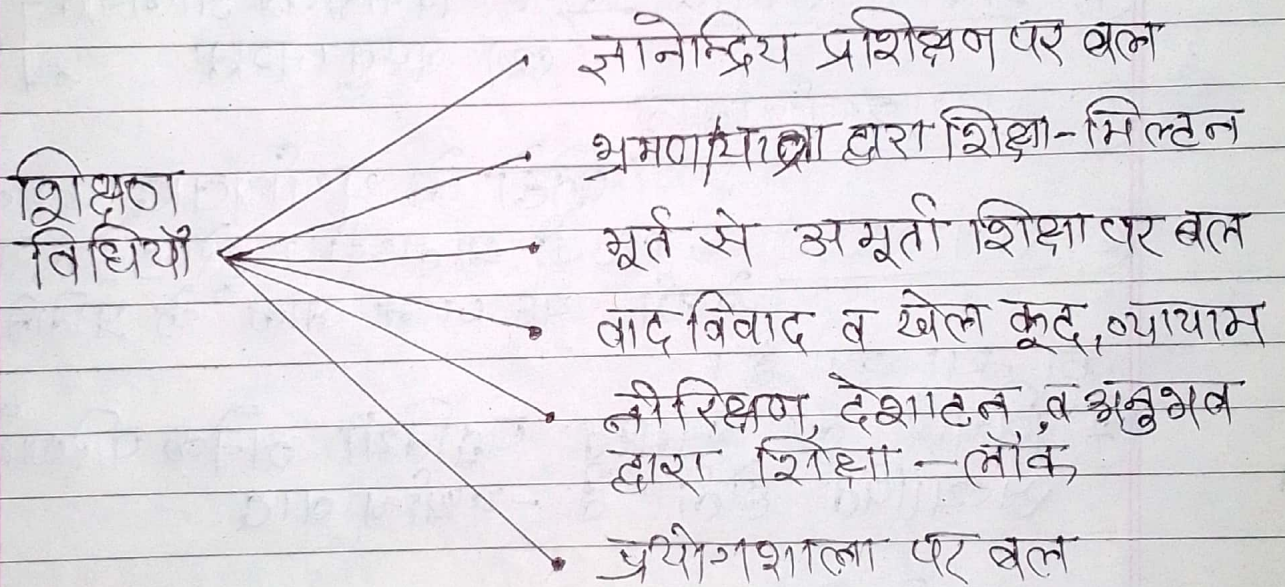 शिक्षण
विधियाँ
ज्ञानेन्द्रिय प्रशिक्षण पर बल
भ्रमण/यात्रा द्वारा शिक्षा - मिल्टन
मूर्त से अमूर्ता शिक्षा पर बल
वाद विवाद व खेल कूद, व्यायाम
नीरिक्षण, देशाटन, व अनुभव
द्वारा शिक्षा - लॉक
प्रयोगशाला पर बल